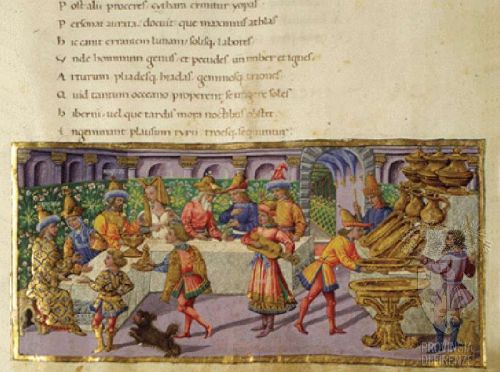 Post alii proceres. cythara crinitur yopas
Personat aurata. docuit que maximus athlas
Hic canit errantem lunam. solisq; labores
Unde hominum genus. et pecudes. un imber et ignes.
Arturum pliadesq; hyadas. geminosq; triones
Quid tantum occeano properent se tingere soles
Hiberni. uel que tardis mora noctibus obstet
Ingeminant plausum tyrii. troesq; sequuntur
PROVINCIA
DI FIRENZE